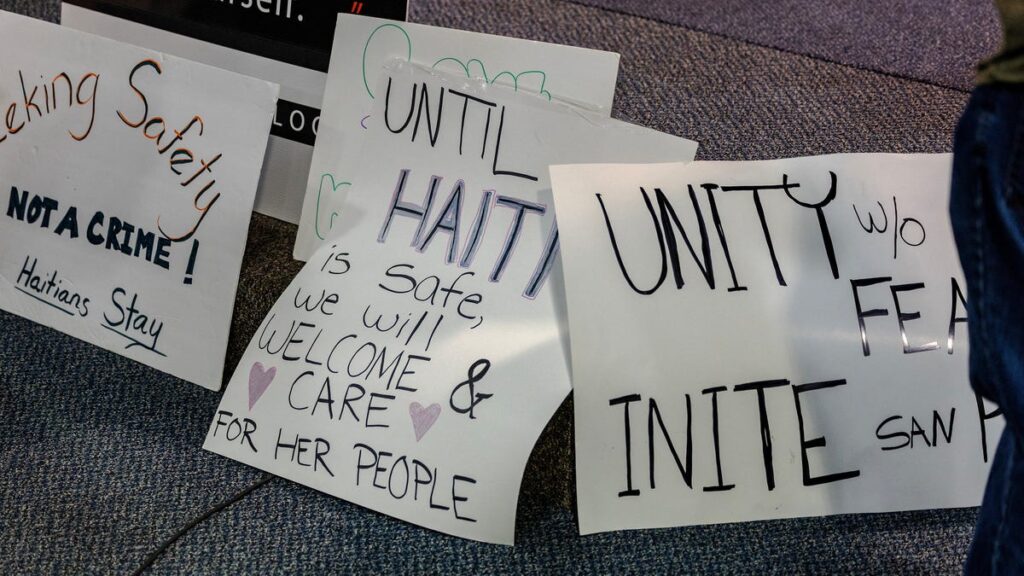 Safety
NOT A CRIME!
Haitians Stay
UNTIL
HAITI
is safe,
we will
WELCOME &
CARE
FOR HER PEOPLE
UNITY w/o
INITE SAN